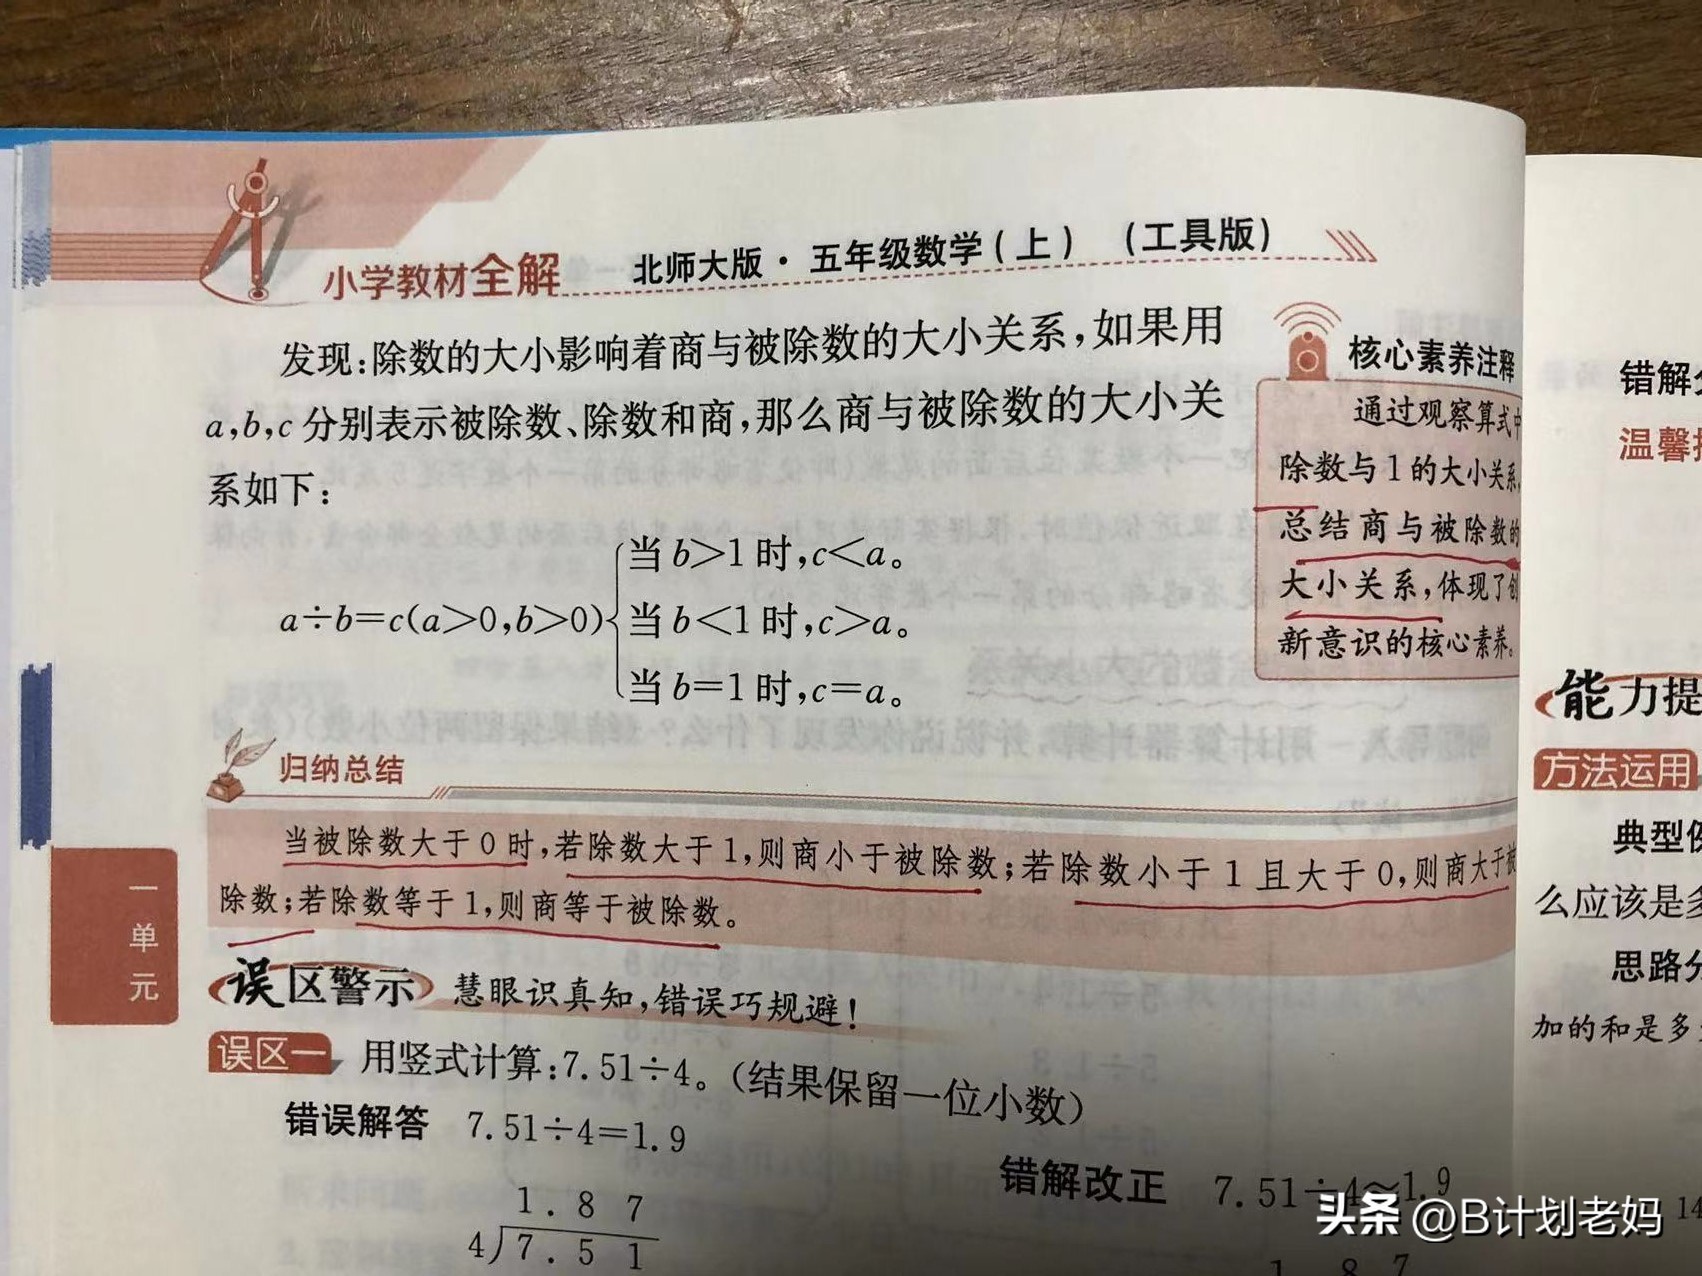 小学教材全解 北师大版·五年级数学(上) (工具版)
发现:除数的大小影响着商与被除数的大小关系,如果用
a,b,c分别表示被除数、除数和商,那么商与被除数的大小关
系如下:
当b>1时,c<a。
a÷b=c(a>0,b>0) 当b<1时,c>a。
当b=1时,c=a。
核心素养注释
通过观察算式中
除数与1的大小关系,
总结商与被除数的
大小关系,体现了创
新意识的核心素养。
归纳总结
当被除数大于0时,若除数大于1,则商小于被除数;若除数小于1且大于0,则商大于被
除数;若除数等于1,则商等于被除数。
一单元
误区警示 慧眼识真知,错误巧规避!
误区一 用竖式计算:7.51÷4。(结果保留一位小数)
错误解答 7.51÷4=1.9
1.87
4)7.51
错解改正 7.51÷4≈1.9
1 8 7
错解
温馨
能力提
方法运用
典型
么应该是多
思路分
加的和是多
14
头条 @B计划老妈